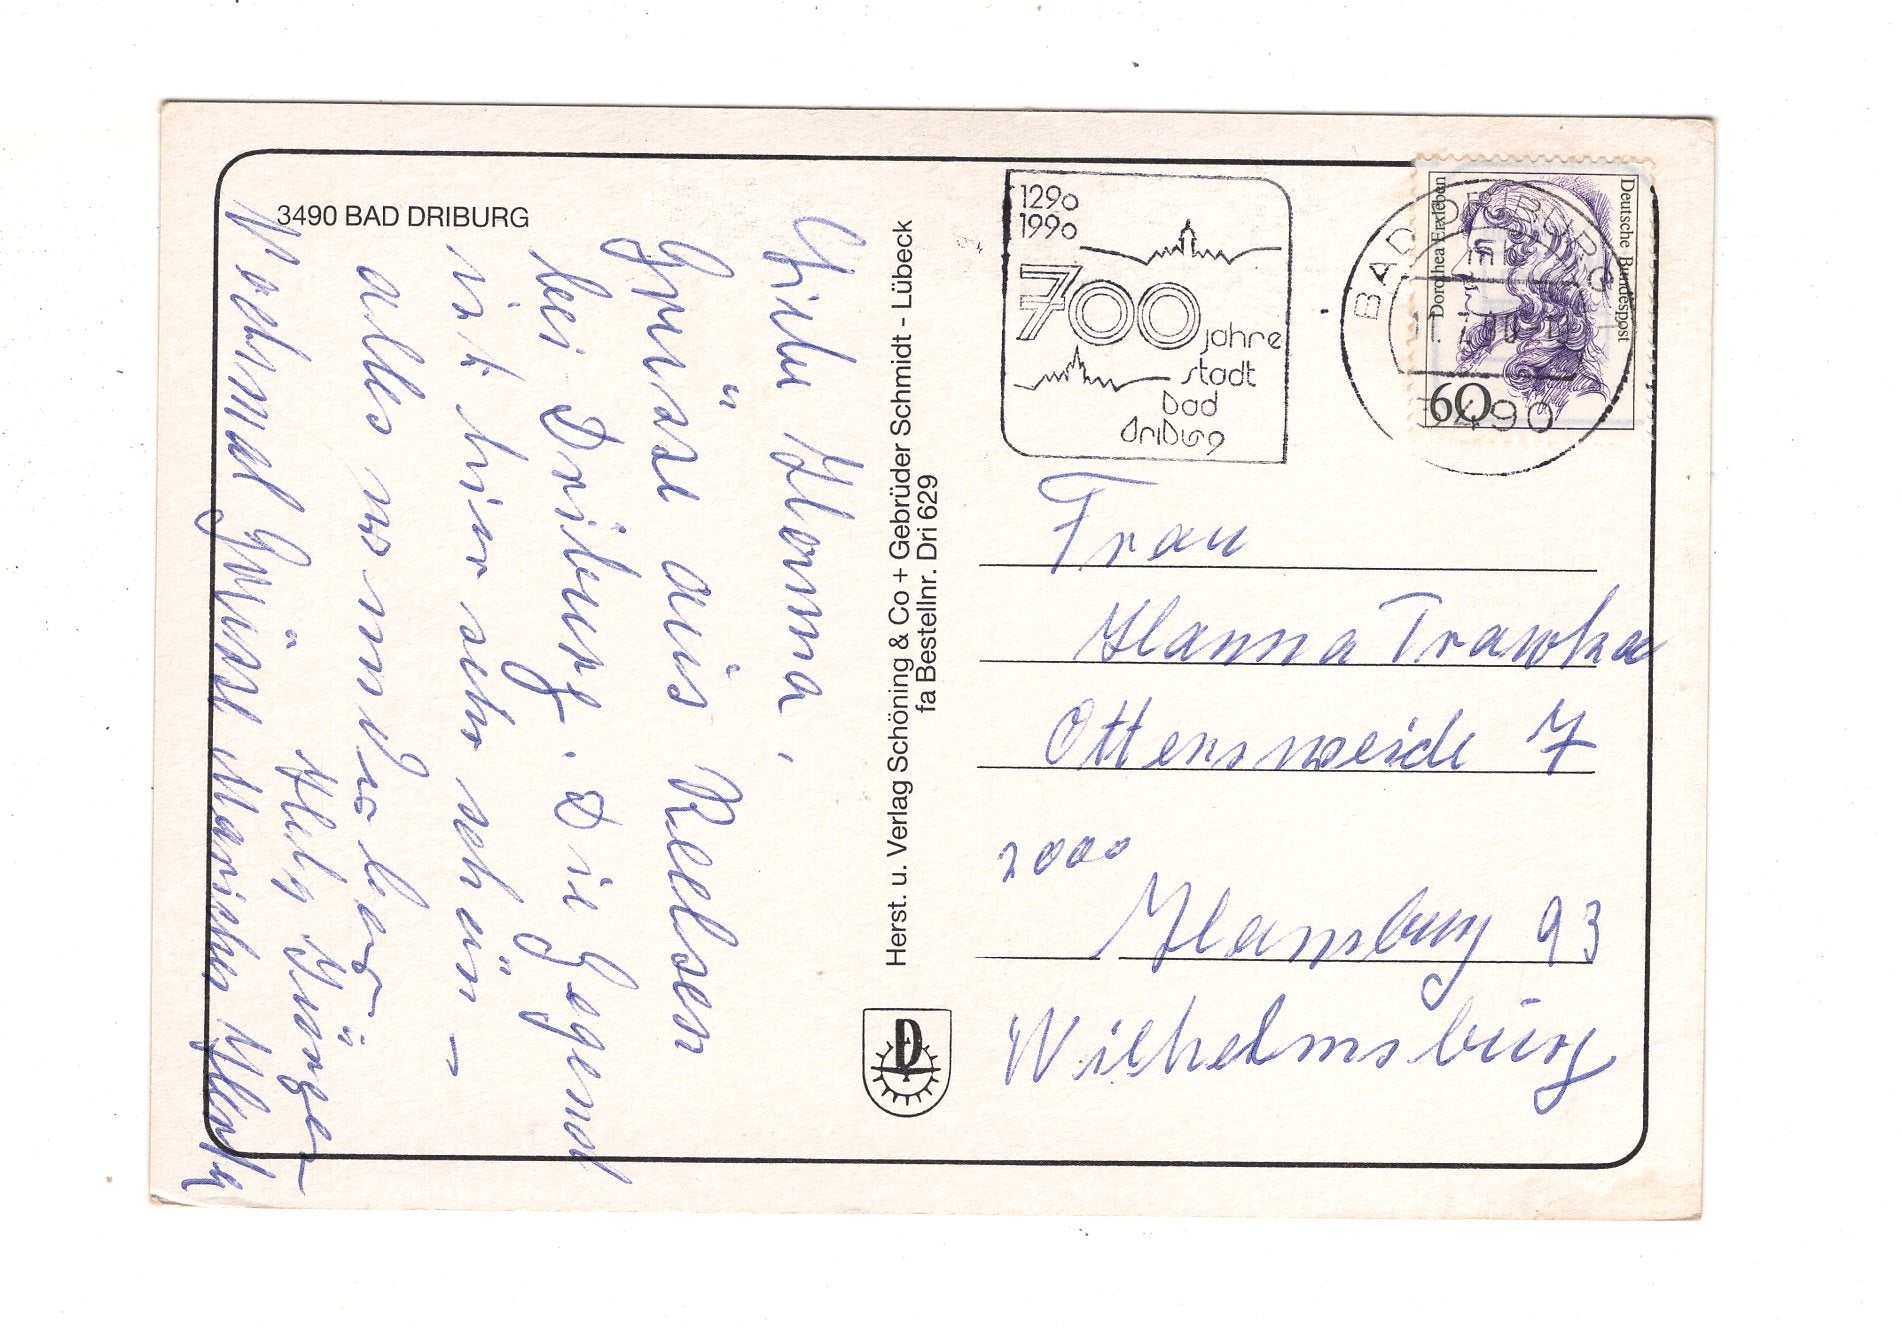 3490 BAD DRIBURG
Liebe Hanna,
Grüsse aus Reelsen
bei Driburg. Die Gegend
ist hier sehr schön –
alles wunderbar
Nochmal Grüsse
Herst. u. Verlag Schöning & Co + Gebrüder Schmidt - Lübeck
fa Bestellnr. Dri 629
1290
1990
700
jahre
stadt
bad
driburg
BAD DRIBURG
3490
Deutsche Bundespost
Dorothea Erxleben
60
Frau
Hanna Trawka
Ottensweide 7
2000
Hamburg 93
Wilhelmsburg